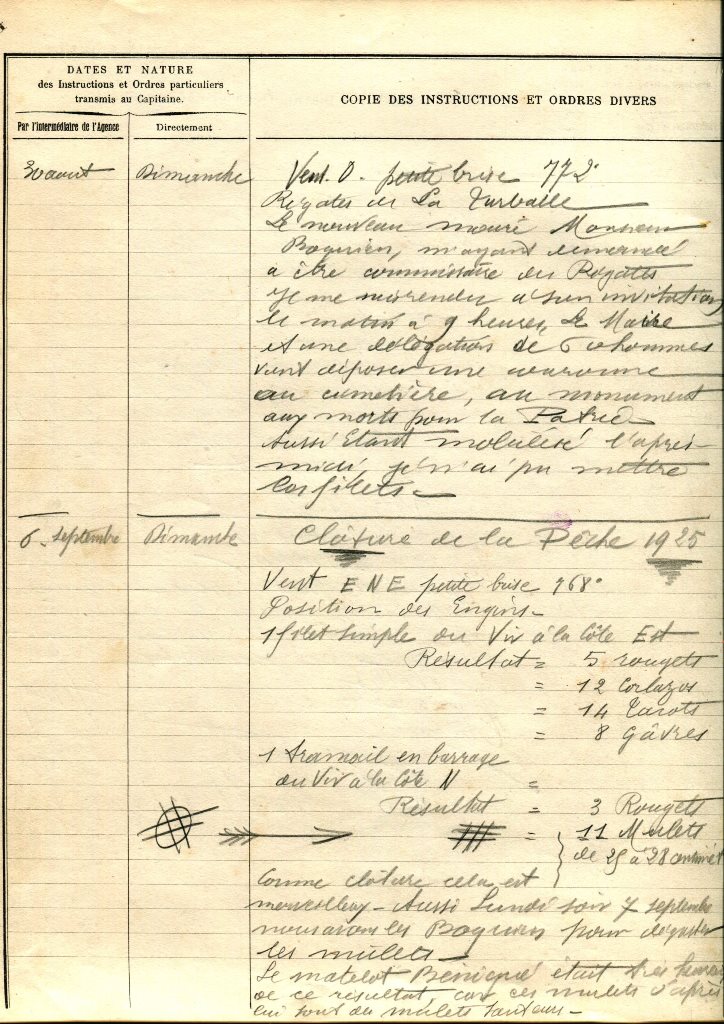 DATES ET NATURE
des Instructions et Ordres particuliers
transmis au Capitaine.
COPIE DES INSTRUCTIONS ET ORDRES DIVERS
Par l'intermédiaire de l'Agence
Directement
30 aout Dimanche Vent. O. petite brise 772°
Régates de La Turballe
Le nouveau maire Monsieur
Boquien, m'ayant demandé
a être commissaire des Régates
Je me suis rendu a son invitation
le matin à 9 heures, Le Maire
et une délégation de 6 hommes
vont déposer une couronne
au cimetière, au monument
aux morts pour la Patrie
Aussi Etant mobilisé l'après
midi, je n'ai pu mettre
les filets -
6 - Septembre Dimanche Clôture de la Pêche 1925
Vent ENE petite brise 768°
Position des Engins -
1 filet simple du Viv à la Côte Est
Résultat = 5 rougets
= 12 Corlazos
= 14 Tacots
= 8 Gâvres
1 tramail en barrage
du Viv à la Côte N =
Résultat = 3 Rougets
= 11 Mulets
de 25 à 28 centimèt
Comme clôture cela est
merveilleux - Aussi Lundi soir 7 septembre
nous avons les Boquien pour déguster
les mulets -
Le matelot Bénigué était très heureux
de ce résultat, car ces mulets d'après
lui sont des mulets sauteurs -